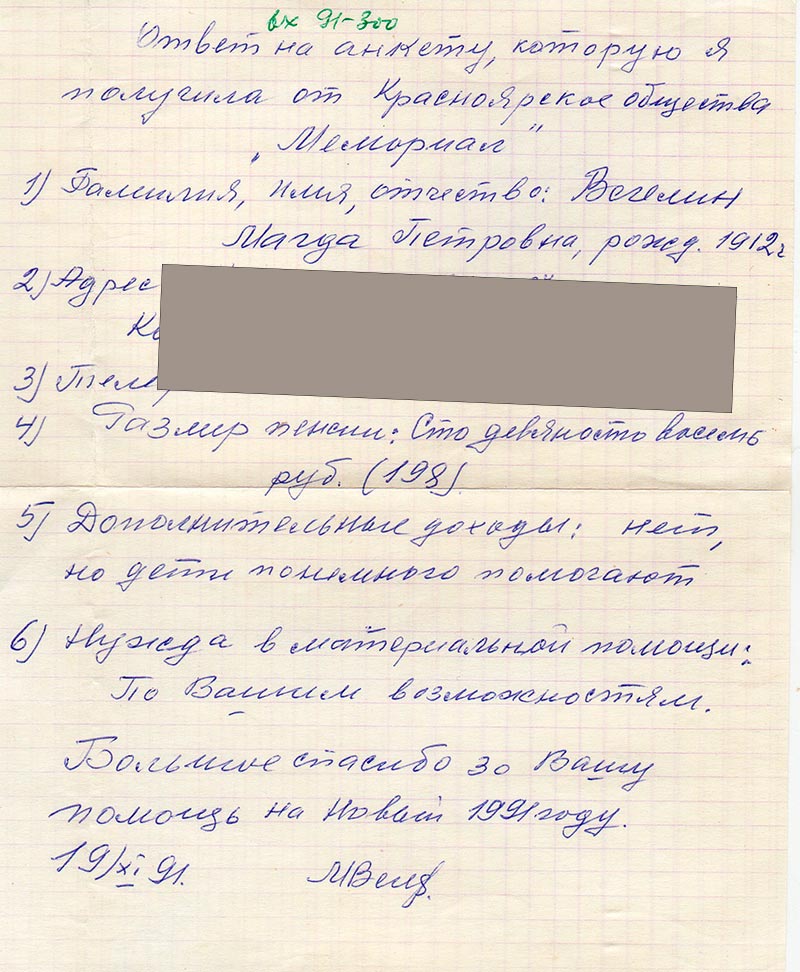 вх 91-300
Ответ на анкету, которую я
получила от Красноярское общества
„Мемориал"
1) Фамилия, имя, отчество: Вегелин
Магда Петровна, рожд. 1912 г
2) Адрес
3) Теле
4) Размир пенсии: Сто девяносто восемь
руб. (198).
5) Дополнительные доходы: нет,
но дети понемного помогают
6) Нужда в материальной помощи:
По Вашим возможностям.
Большое спасибо за Вашу
помощь на Новый 1991 году.
19/XI 91.